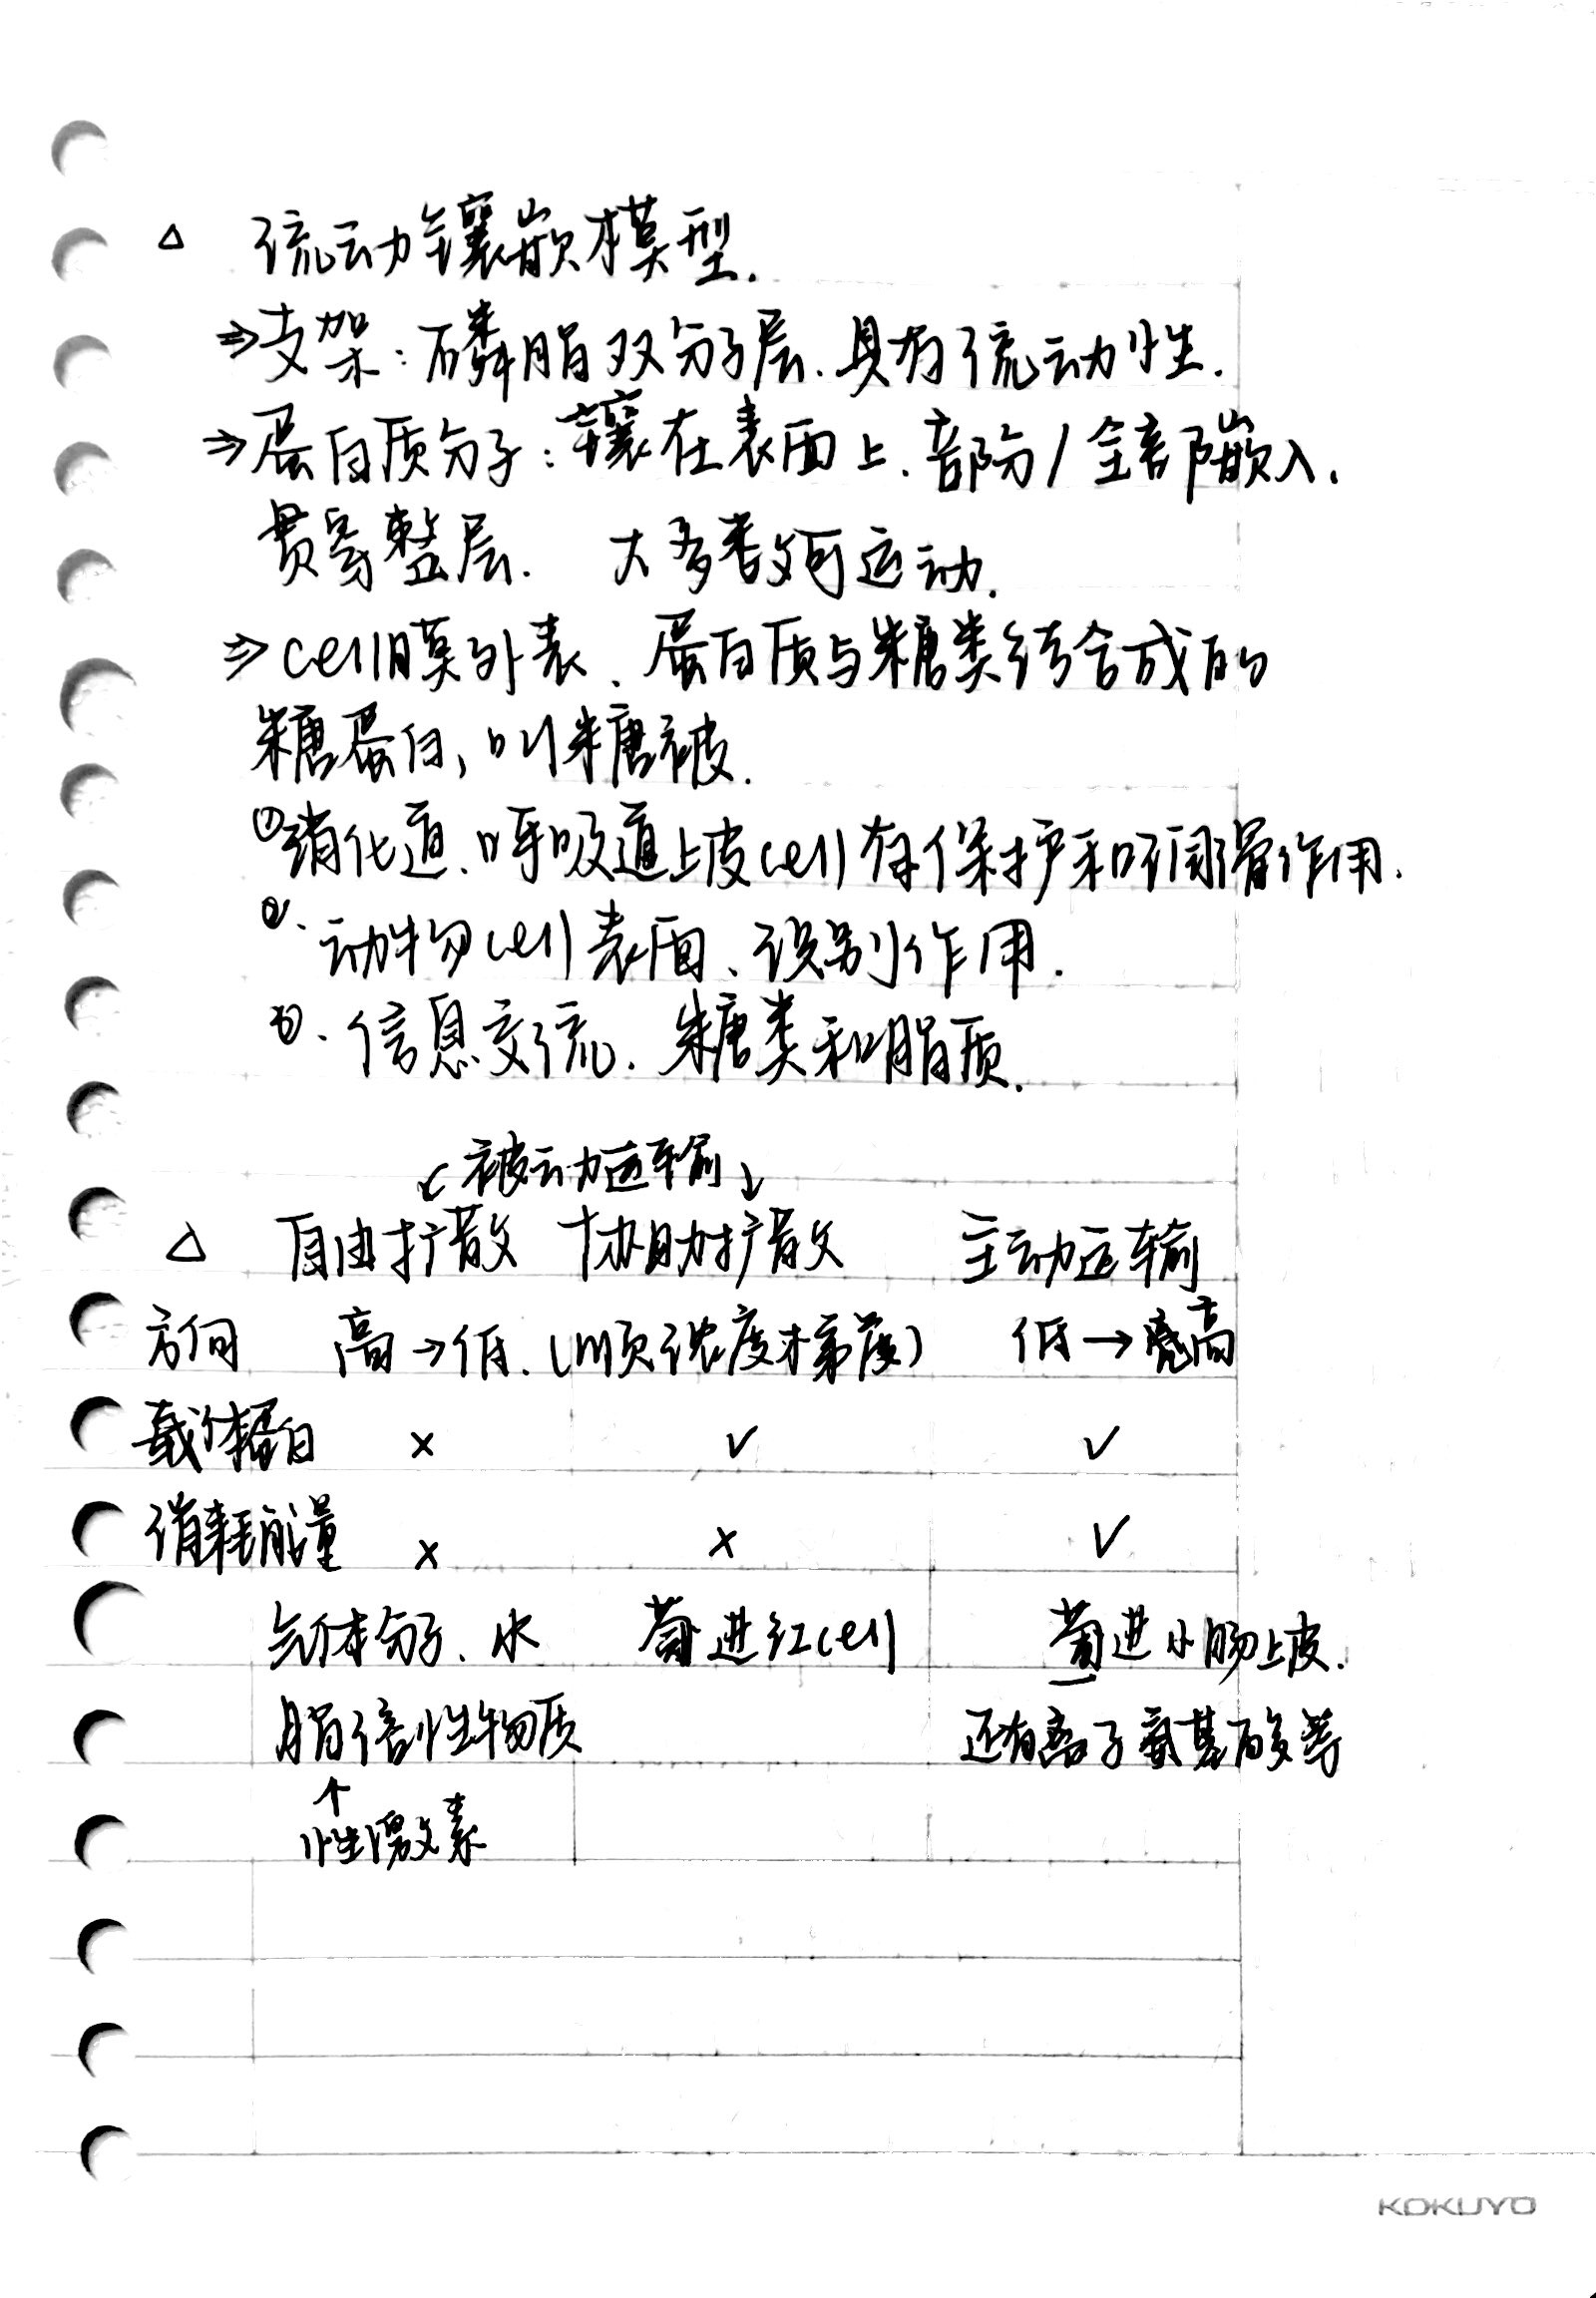 △ 流动镶嵌模型.
⇒支架:磷脂双分子层.具有流动性.
⇒蛋白质分子:镶在表面上.部分/全部嵌入.
贯穿整层. 大多数可运动.
⇒cell膜外表、蛋白质与糖类结合成的
糖蛋白,叫糖被.
①消化道、呼吸道上皮cell有保护和润滑作用.
②.动物cell表面、识别作用.
③.信息交流.糖类和脂质.
↙被动运输↘
△ 自由扩散 协助扩散 主动运输
方向 高→低.(顺浓度梯度) 低→高
载体蛋白 × √ √
消耗能量 × × √
气体分子、水 葡进红cell 葡进小肠上皮.
脂溶性物质 还有离子氨基酸等
↑
性激素
KOKUYO